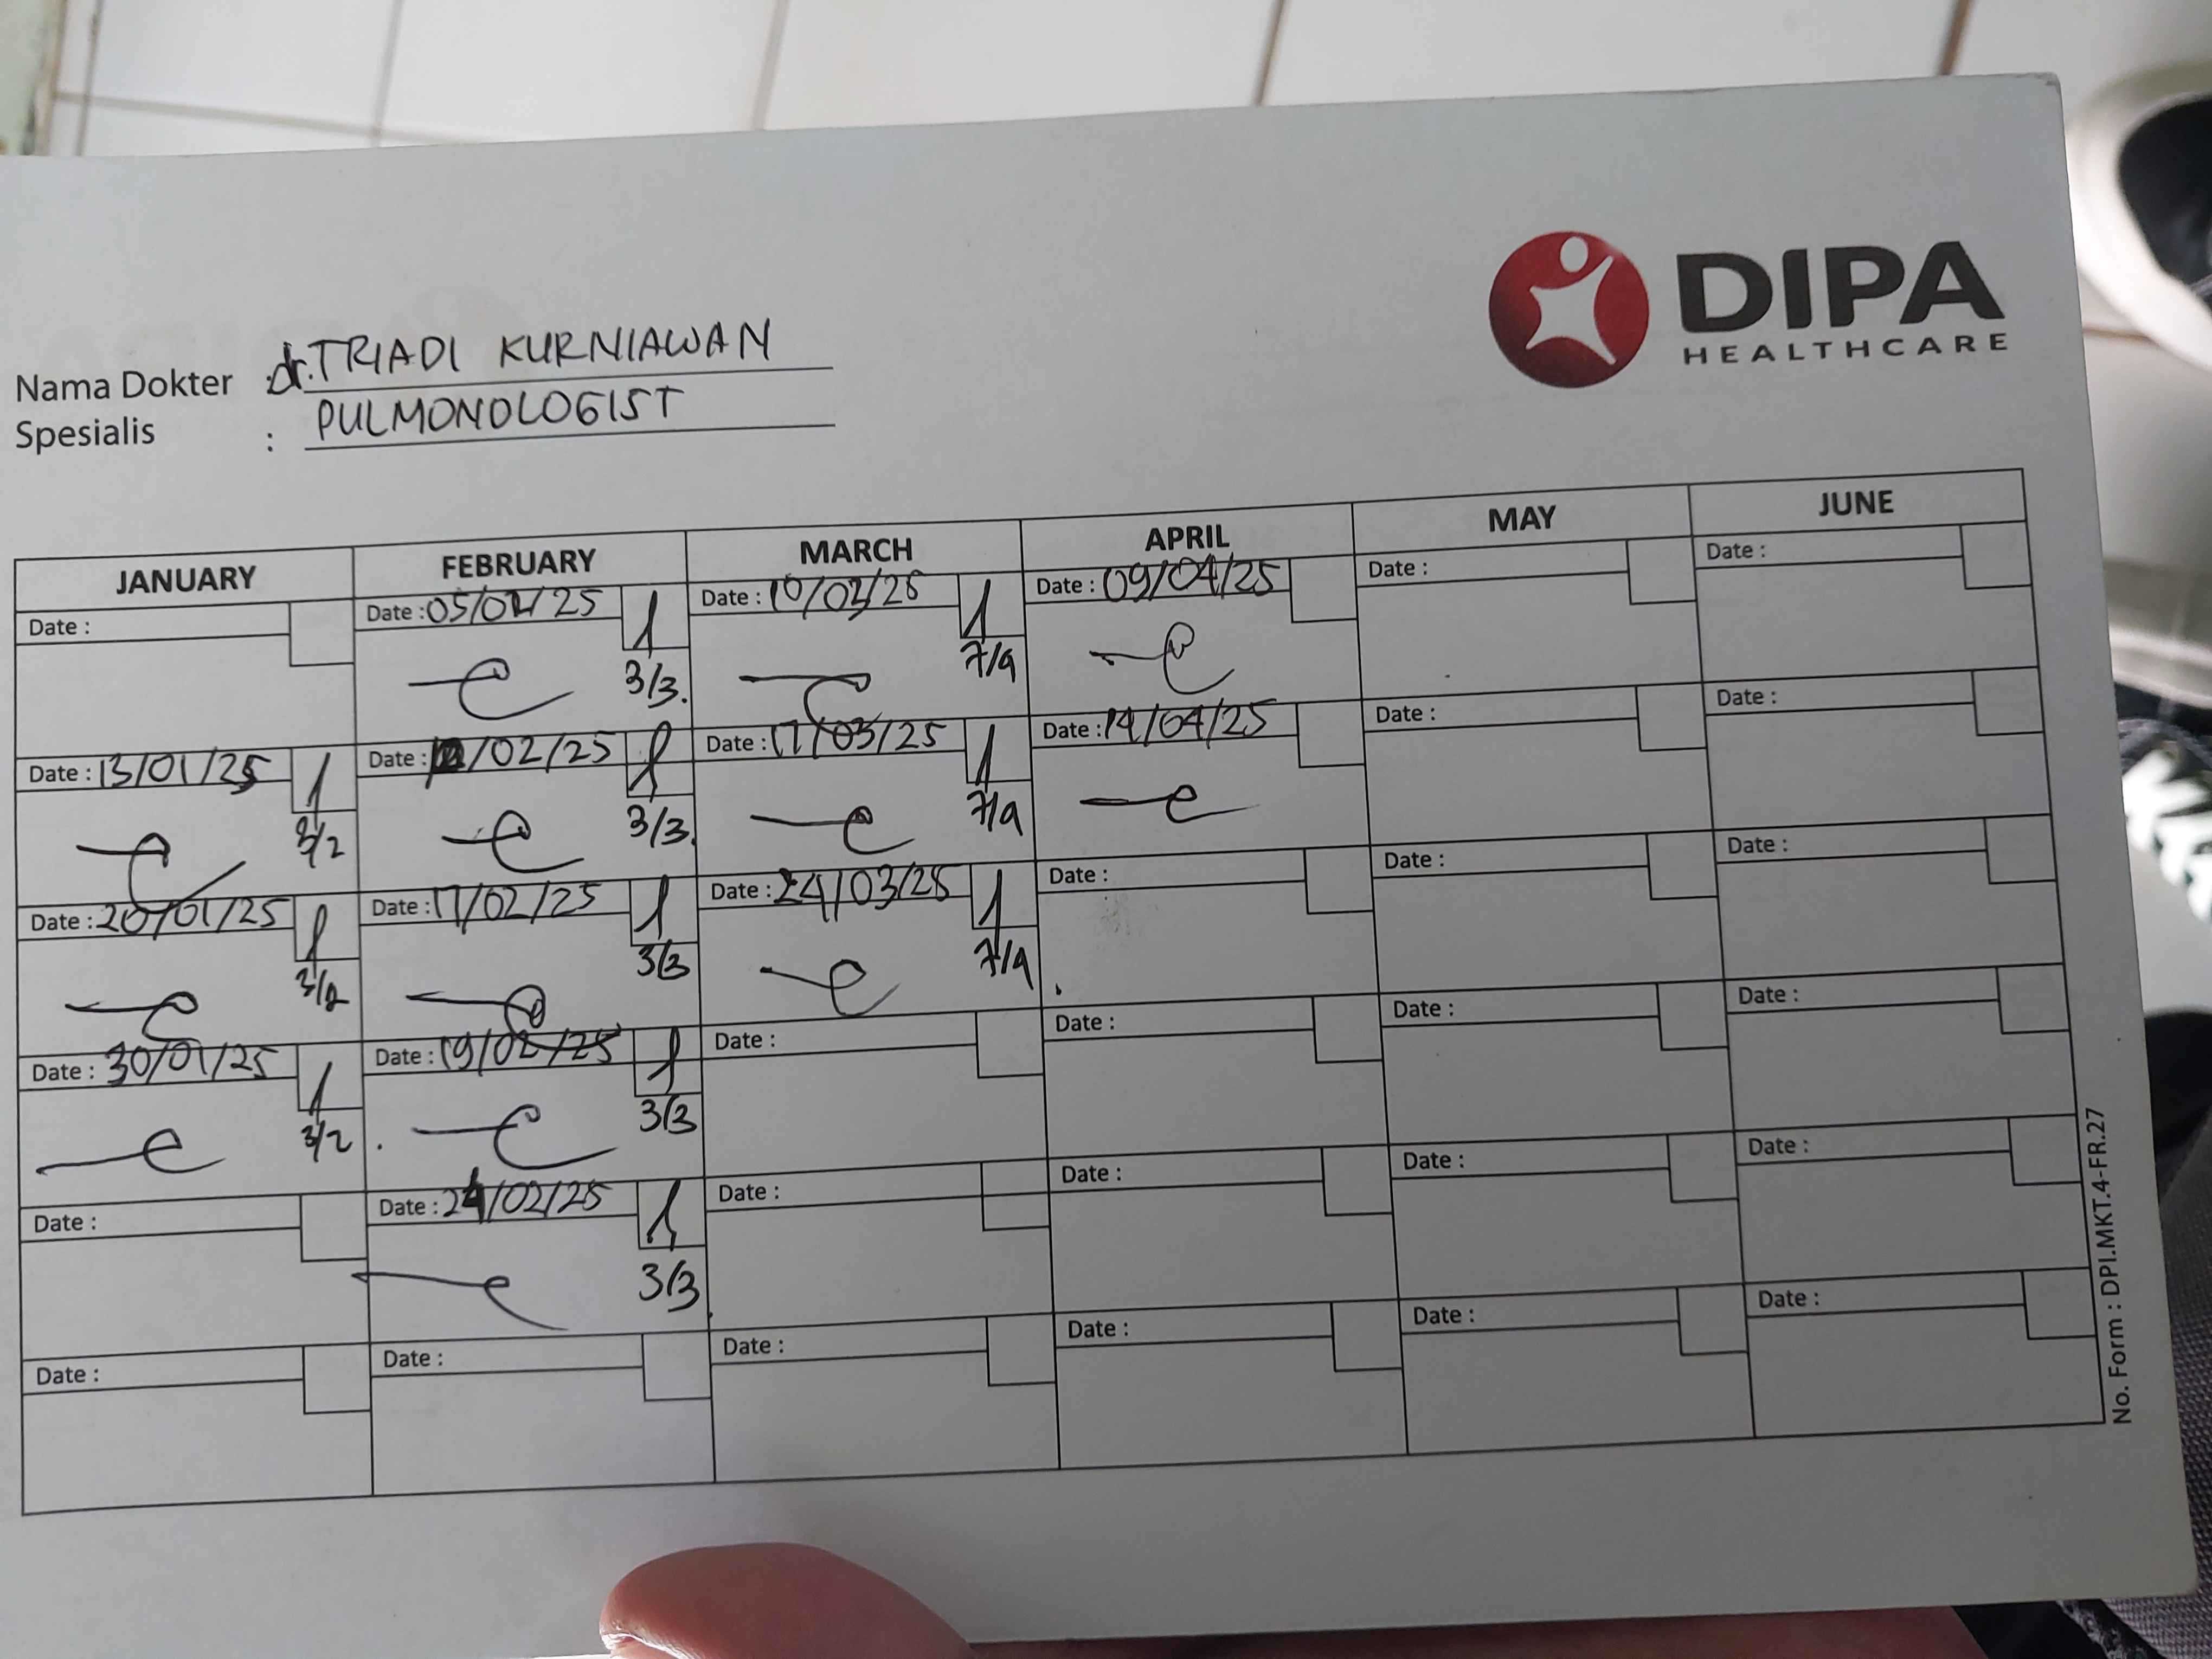 DIPA
HEALTHCARE
Nama Dokter : dr. TRIADI KURNIAWAN
Spesialis : PULMONOLOGIST
JANUARY FEBRUARY MARCH APRIL MAY JUNE
Date : Date : 05/02/25 Date : 10/03/25 Date : 09/04/25 Date : Date :
3/3. 7/4
Date : 13/01/25 Date : /02/25 Date : 17/03/25 Date : 14/04/25 Date : Date :
3/2 3/3. 7/4
Date : 20/01/25 Date : 17/02/25 Date : 24/03/25 Date : Date : Date :
3/2 3/3 7/4
Date : 30/01/25 Date : 19/02/25 Date : Date : Date : Date :
3/2 3/3
Date : Date : 24/02/25 Date : Date : Date : Date :
3/3
Date : Date : Date : Date : Date : Date :
No. Form : DPI.MKT.4-FR.27